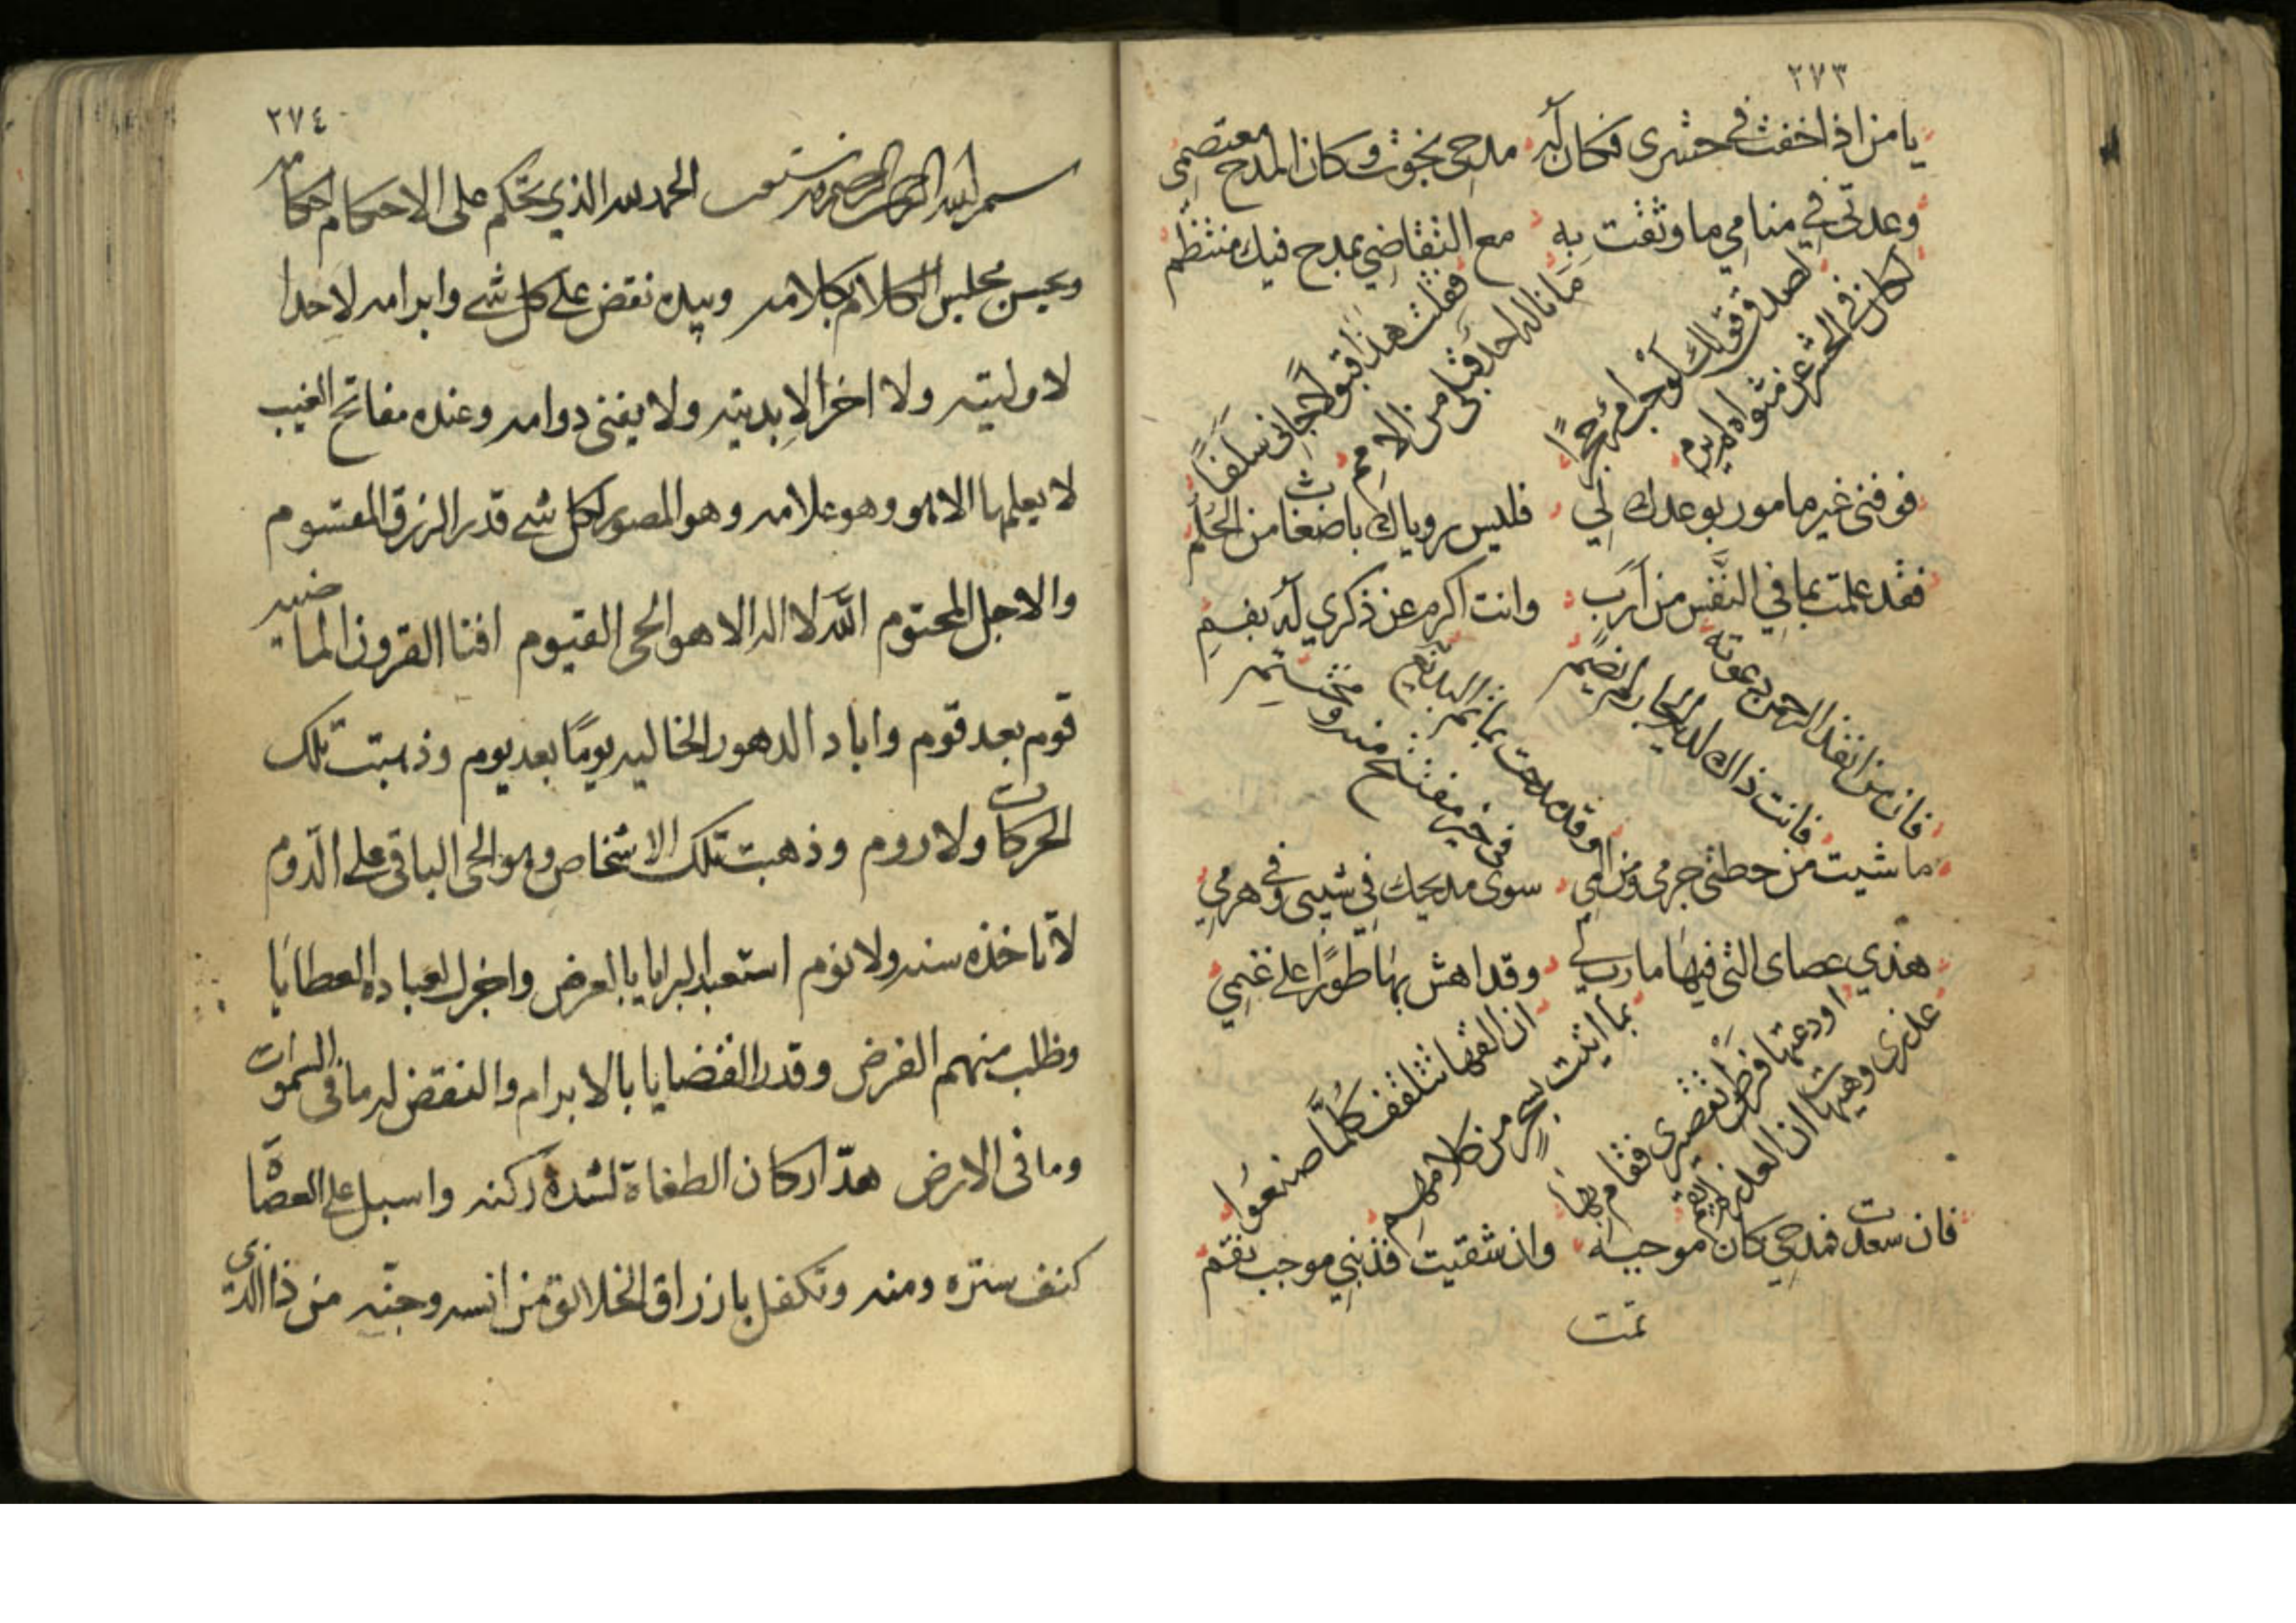 ٢٧٣
يا من اذا خفت في حشري فكان له مدحي نجوت وكان المدح معتصمي
وعدتني في منامي ما وثقت به مع التقاضي بمدح فيك منتظم
فقلت هذا قبول جاني سلفا
ما ناله احد قبلي من الامم
لصدق قولك لو حب امرء حجرا
لكان في الحشر عن مثواه لم يرم
فوفني غير مامور بوعدك لي فليس روياك باضغاث من الحلم
فقد علمت بما في النفس من ارب وانت اكرم عن ذكري له بفم
فان من انفذ الرحمن دعوته
فانت ذاك لديه الجار لم يضم
وقد مدحت بما تم البديع
من خير مفتتح منه ومختتم
ما شيت من حطني جرمي ومن المي سوى مديحك في شيبي وفي هرمي
هذي عصاي التي فيها مارب لي وقد اهش بها طورا على غنمي
ان القها تتلقف كلما صنعوا
بما اتيت بسحر من كلامهم
اودعتها فرط تقصري فقام بها
عذري وهيهات ان العذر لم يقم
فان سعدت فمدحي كان موجبه وان شقيت فذنبي موجب نقم
تمت
٢٧٤
بسم الله الرحمن الرحيم وبه نستعين الحمد لله الذي تحكم على الاحكام احكامه
ويحسن مجلس الكلام بكلامه وبيده نقض على كل شي وابرامه لا حدا
لاوليته ولا اخر الابديته ولا يفنى دوامه وعنده مفاتح الغيب
لا يعلمها الا هو وهو علامه وهو المصور لكل شي قدر الرزق المقسوم
والاجل المحتوم الله لا اله الا هو الحي القيوم افنا القرون الماضيه
قوم بعد قوم واباد الدهور الخاليه يوما بعد يوم وذهبت تلك
الحركات ولا دوم وذهبت تلك الاشخاص وهو الحي الباقي على الدوم
لا تاخذه سنه ولا نوم استعبد البرايا بالعرض واجزل لعباده العطايا
وطلب منهم الفرض وقدر القضايا بالابرام والنقض له ما في السموات
وما في الارض هد اركان الطغاة لشدة ركنه واسبل على العصاة
كنف ستره ومنه وتكفل بارزاق الخلائق من انسه وجنه من ذا الذي